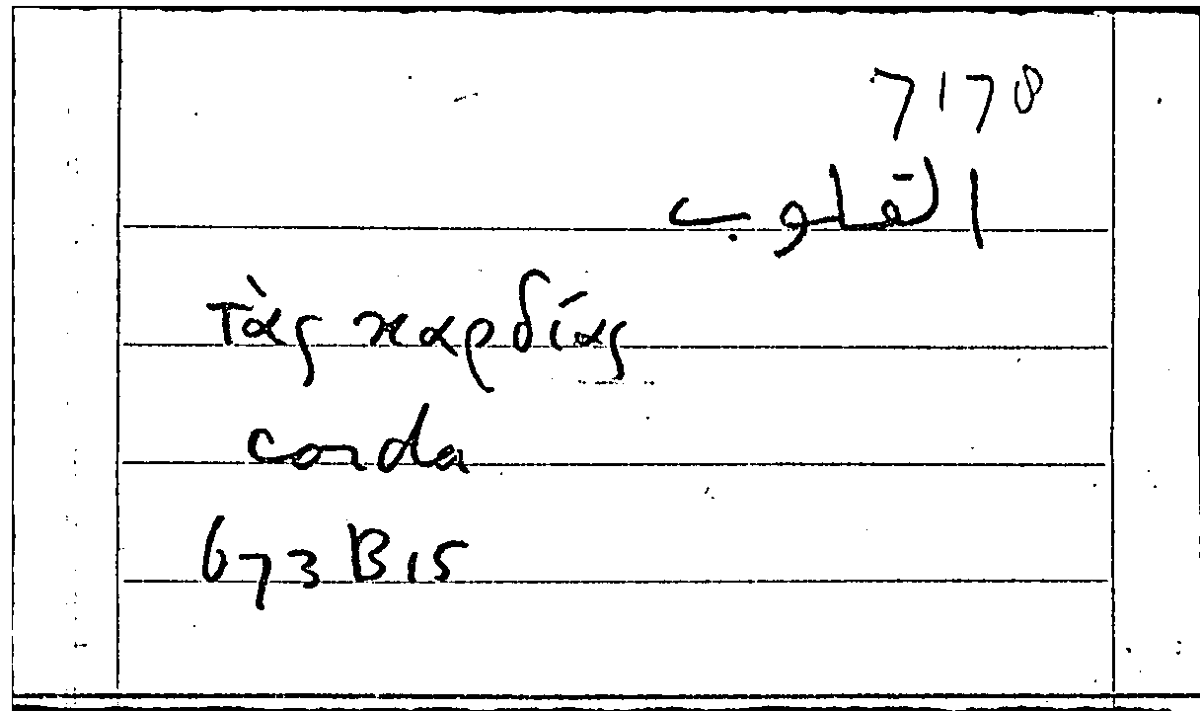 7178
القلوب
τὰς καρδίας
corda
673 B 15